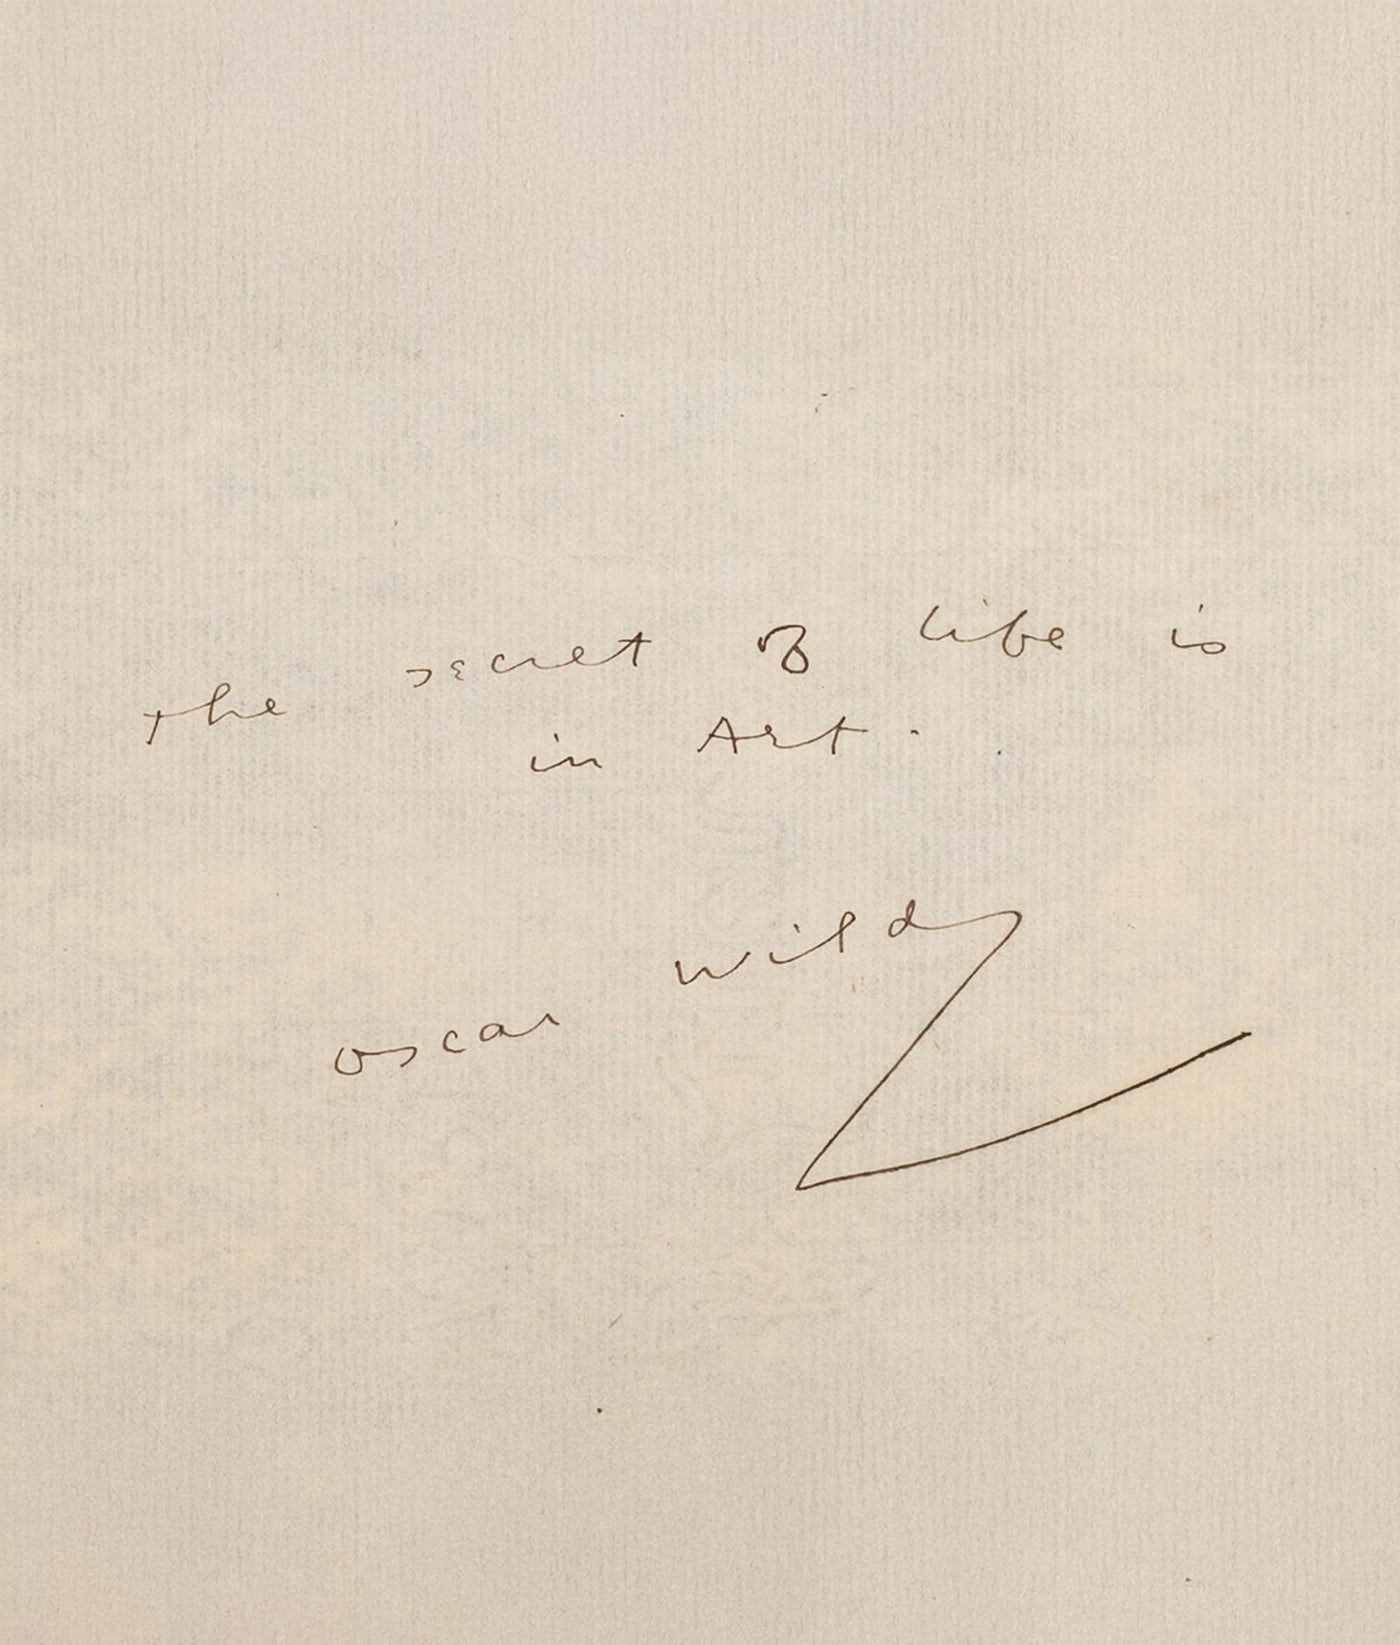 The secret of life is
in Art.
Oscar Wilde